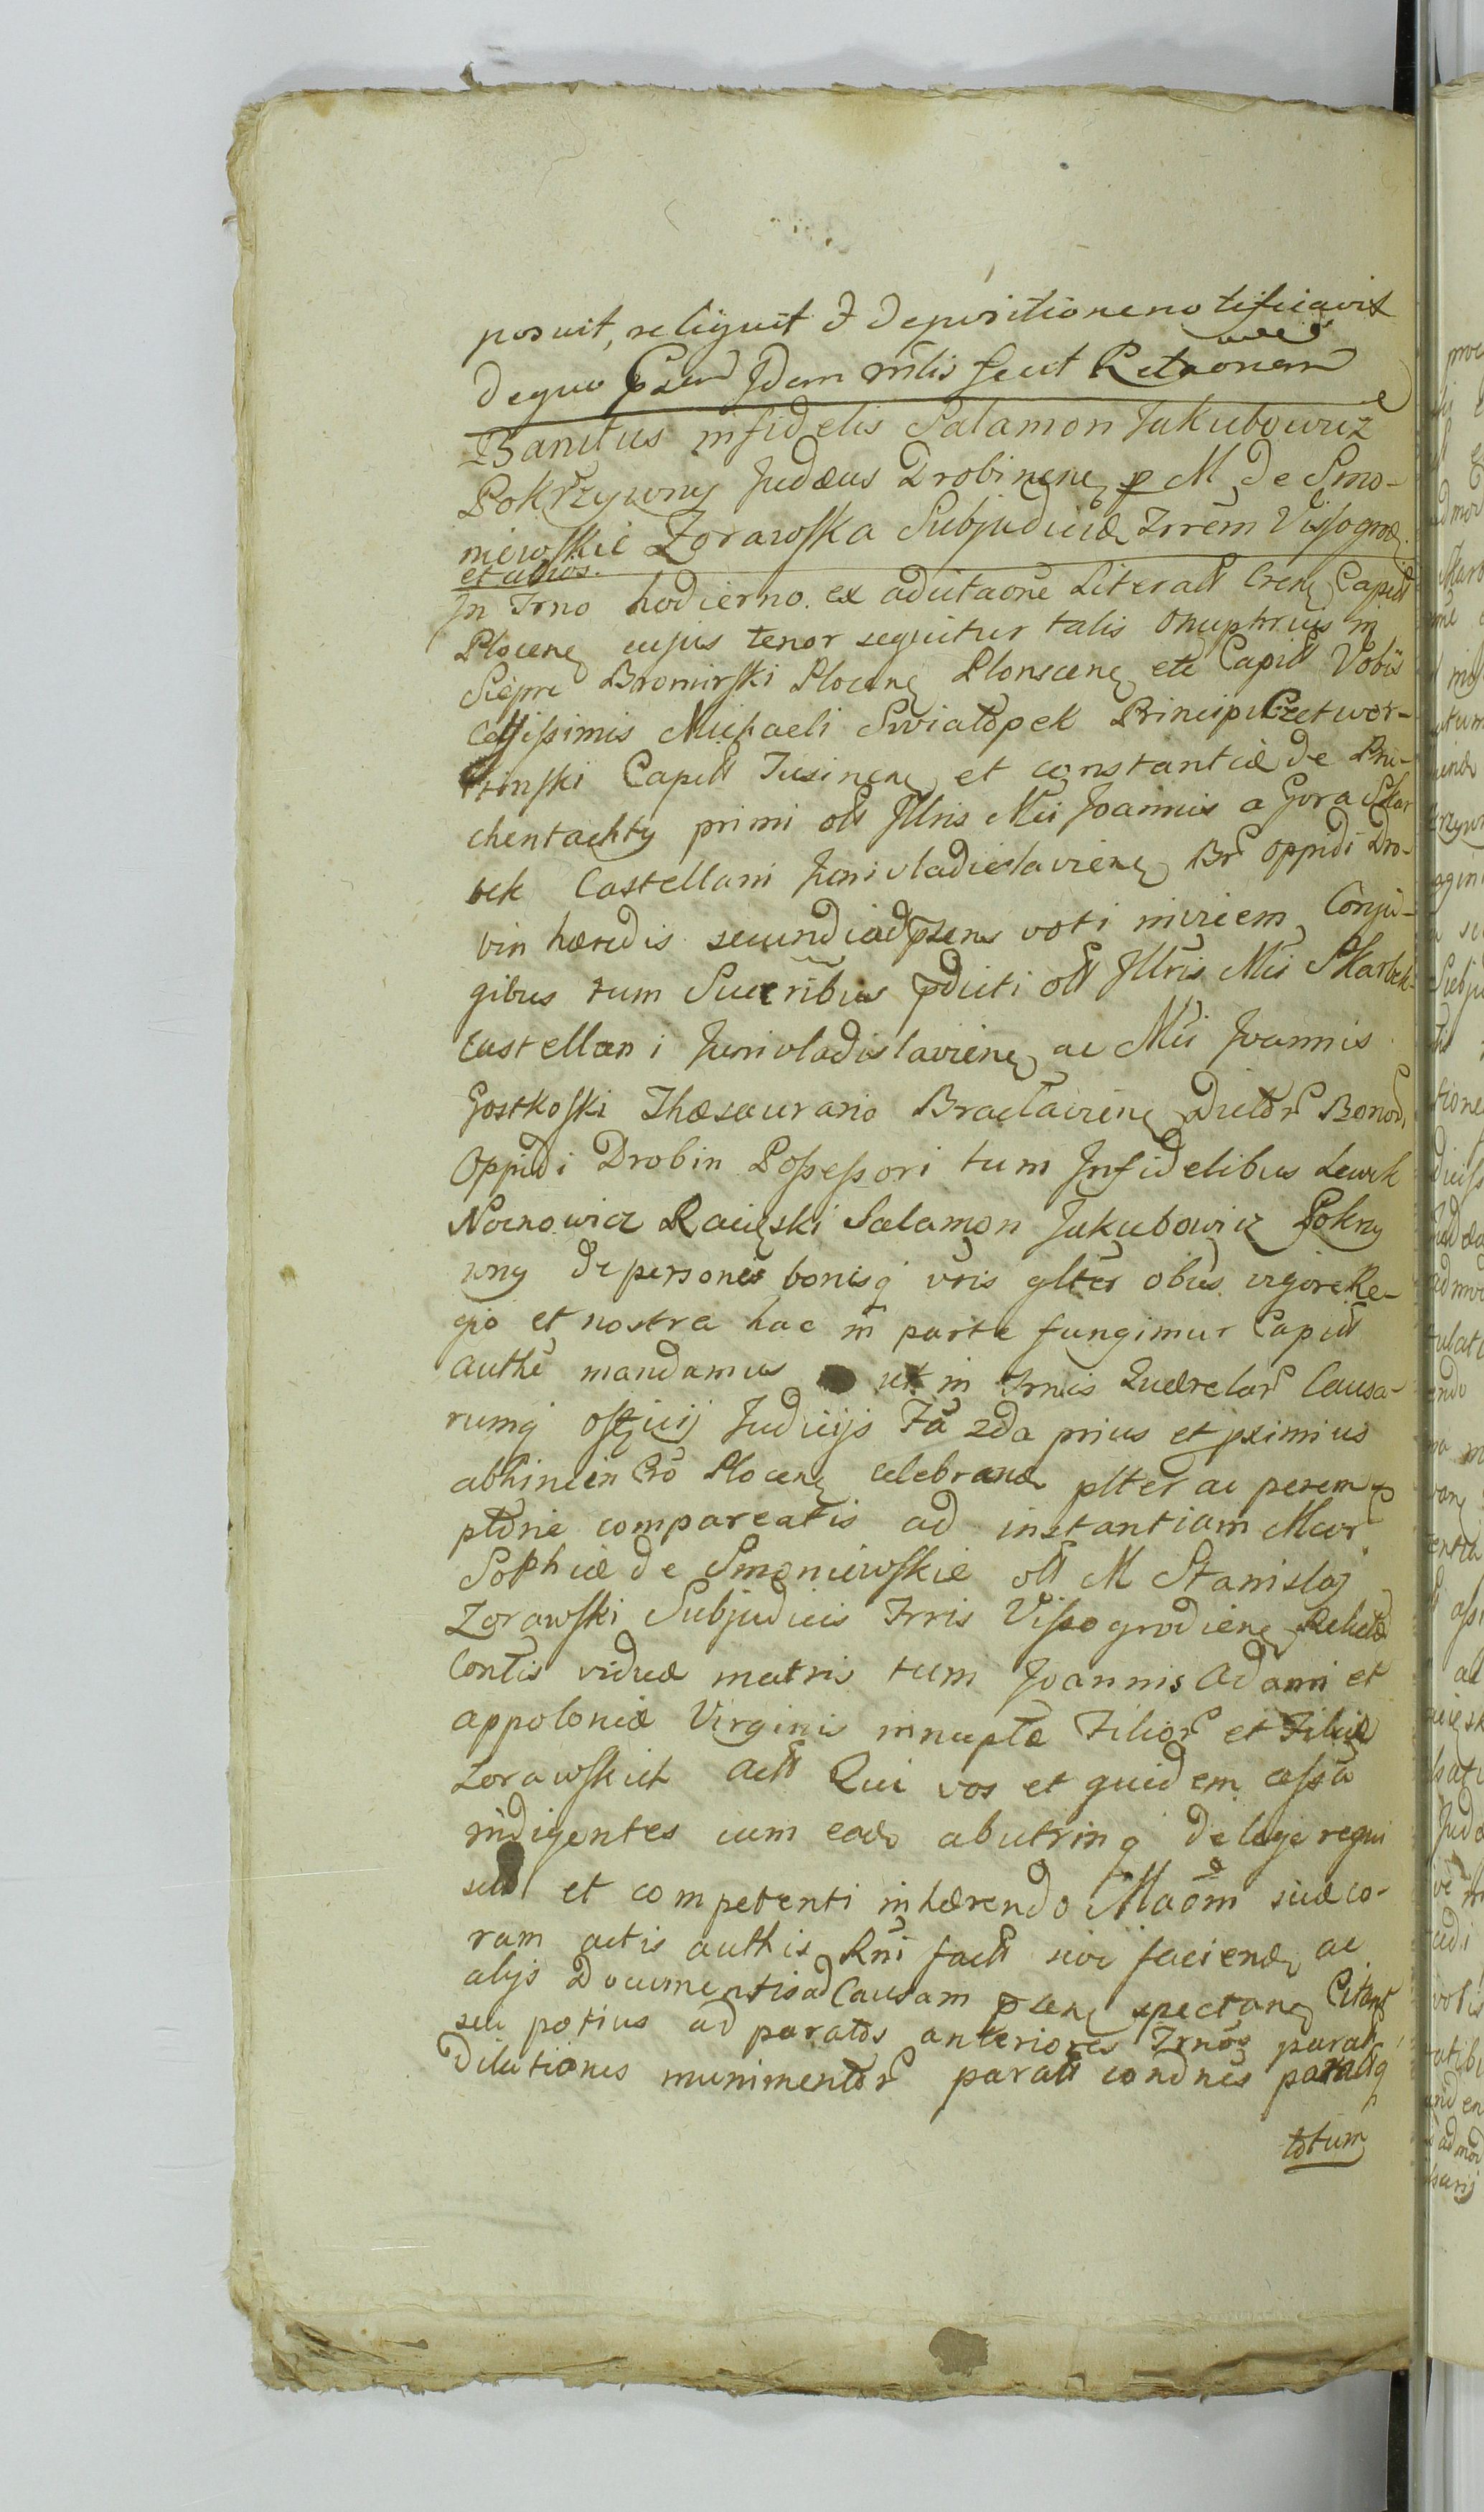 posuit, reliquit & depositione notificavit
de quo Psens Idem mlis fecit Relaonem
Banitus infidelis Salamon Jakubowicz
Pokrzywny Judæus Drobinen p M de Smo-
niewskie Zorawska Subjudicæ Trrem Vissogrod
et alios.
In Trno hodierno ex adcitaone Literali Cren Capitt
Plocen cujus tenor sequitur talis Onuphrius in
Siepre Bromirski Plocen Plonscen etc Capitt Vobis
Celsissimis Michaeli Swiatopek Principi Czetwer-
tinski Capitt Jusinen et constantiæ de
chentachty primi olt Illris Mci Joannis a Gora Skar
bek Castellani Junivladislavien Br oppidi Dro-
bin hæredis secundi ad psens voti invicem Conju-
gibus tum Sucribus pdicti olt Illris Mci Skarbek
Castellani Junivladislavien ac Mci Joannis
Gostkoski Thæsaurario Braclavien dictor Bonor
Oppidi Drobin Possessori tum Infidelibus Lewek
Nocnowicz Racięski Salamon Jakubowicz Pokrzy
wny de personis bonisq vris glter obus vigore Re-
gio et nostra hac in parte fungimur Capitt
authe mandamus ut in Trnis Quærelar Causa-
rumq officij Judicijs Fa 2da prius et pximius
abhinc in Cro Plocen celebrand plter ac perem-
ptorie compareatis ad instantiam Mcor
Sophiæ de Smoniewskie olt M Stanislaj
Zorawski Subjudicis Trris Vissogrodien Relictæ
Contis viduæ matris tum Joannis Adami et
appoloniæ Virginis innuptæ Filior et Filiæ
Zorawskich Actt Qui vos et quidem assa
indigentes cum eade abutrinq de lege regni
sed et competenti inhærendo Maom suæ co-
ram actis authis Rni fact sive faciend ac
alijs Documentis ad Causam psen spectan Citant
seu potius ad paratos anteriores Trnos parat
Dilationis munimentor paratt condnes paratq
totum